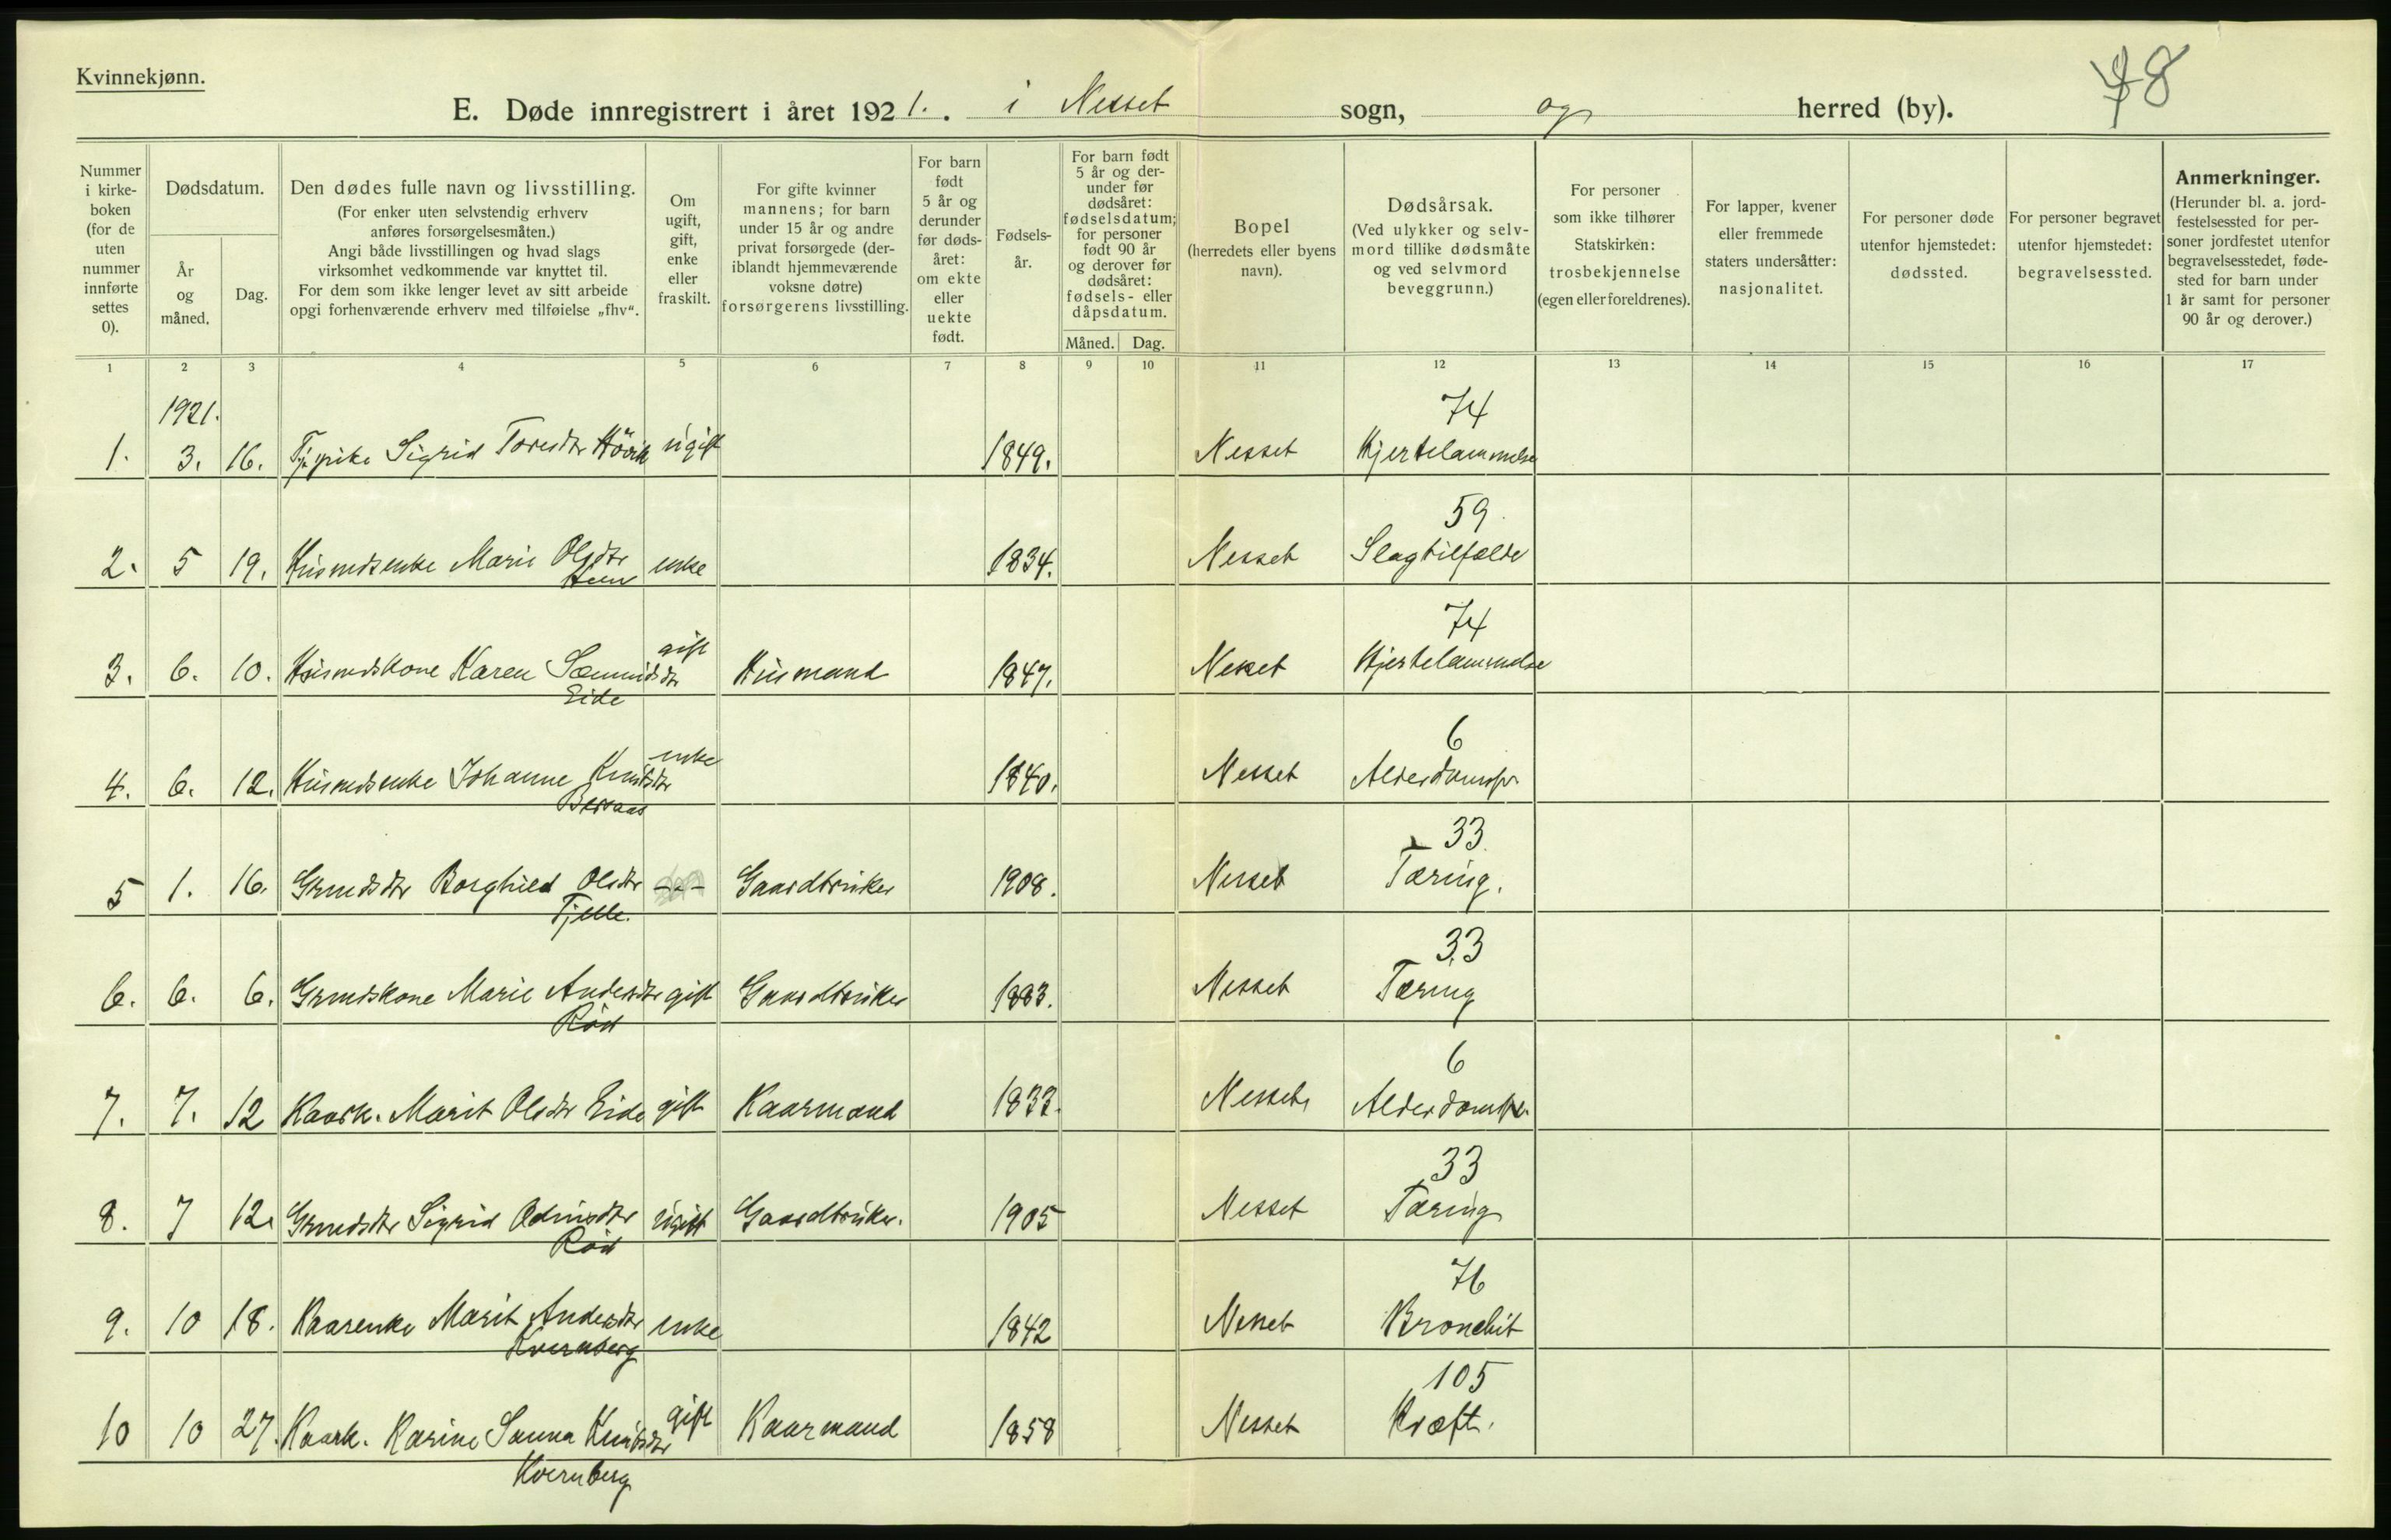 Kvinnekjønn.
78
E. Døde innregistrert i året 1921. i Nesset sogn, og herred (by).
Nummer i kirke- boken (for de uten nummer innførte settes 0).
Dødsdatum.
År og måned.
Dag.
Den dødes fulle navn og livsstilling.
(For enker uten selvstendig erhverv
anføres forsørgelsesmåten.)
Angi både livsstillingen og hvad slags
virksomhet vedkommende var knyttet til.
For dem som ikke lenger levet av sitt arbeide
opgi forhenværende erhverv med tilføielse „fhv“.
Om ugift, gift, enke eller fraskilt.
For gifte kvinner
mannens; for barn
under 15 år og andre
privat forsørgede (der-
iblandt hjemmeværende
voksne døtre)
forsørgerens livsstilling.
For barn født 5 år og derunder før døds- året: om ekte eller uekte født.
Fødsels- år.
For barn født
5 år og der-
under før
dødsåret:
fødselsdatum;
for personer
født 90 år
og derover før
dødsåret:
fødsels- eller
dåpsdatum.
Måned. Dag.
Bopel
(herredets eller byens
navn).
Dødsårsak.
(Ved ulykker og selv-
mord tillike dødsmåte
og ved selvmord
beveggrunn.)
For personer
som ikke tilhører
Statskirken:
trosbekjennelse
(egen eller foreldrenes).
For lapper, kvener
eller fremmede
staters undersåtter:
nasjonalitet.
For personer døde
utenfor hjemstedet:
dødssted.
For personer begravet
utenfor hjemstedet:
begravelsessted.
Anmerkninger.
(Herunder bl. a. jord-
festelsessted for per-
soner jordfestet utenfor
begravelsesstedet, føde-
sted for barn under
1 år samt for personer
90 år og derover.)
1 2 3 4 5 6 7 8 9 10 11 12 13 14 15 16 17
1921. 74
1. 3. 16. Tj.pike Sigrid Toresdtr Hövik ugift 1849. Nesset Hjertelammelse
59
2. 5 19. Husmdsenke Marie Olsdtr enke 1834. Nesset Slagtilfælde
Heen
74
3. 6. 10. Husmdskone Karen Sæmundsdtr gift Husmand 1847. Nesset Hjertelammelse
Eide
6
4. 6. 12. Husmdsenke Johanne Knutsdtr enke 1840. Nesset Alderdomssv.
33
5 1. 16. Grmdsdtr Borghild Olsdtr --- Gaardbruker 1908. Nesset Tæring.
Tjelle.
33
6. 6. 6. Grmdskone Marie Andersdtr gift Gaardbruker 1883. Nesset Tæring
Röd
6
7. 7. 12 Kaark. Marit Olsdtr Eide gift Kaarmand 1833. Nesset Alderdomssv.
33
8. 7 12. Grmdsdtr Sigrid Odinsdtr ugift Gaardbruker. 1905 Nesset Tæring
Röd
76
9. 10 18. Kaarenke Marit Andersdtr enke 1842 Nesset Bronchit
Kvernberg
105
10 10 27. Kaark. Karine Sanna Knutsdtr gift Kaarmand 1858 Nesset Kræft.
Kvernberg